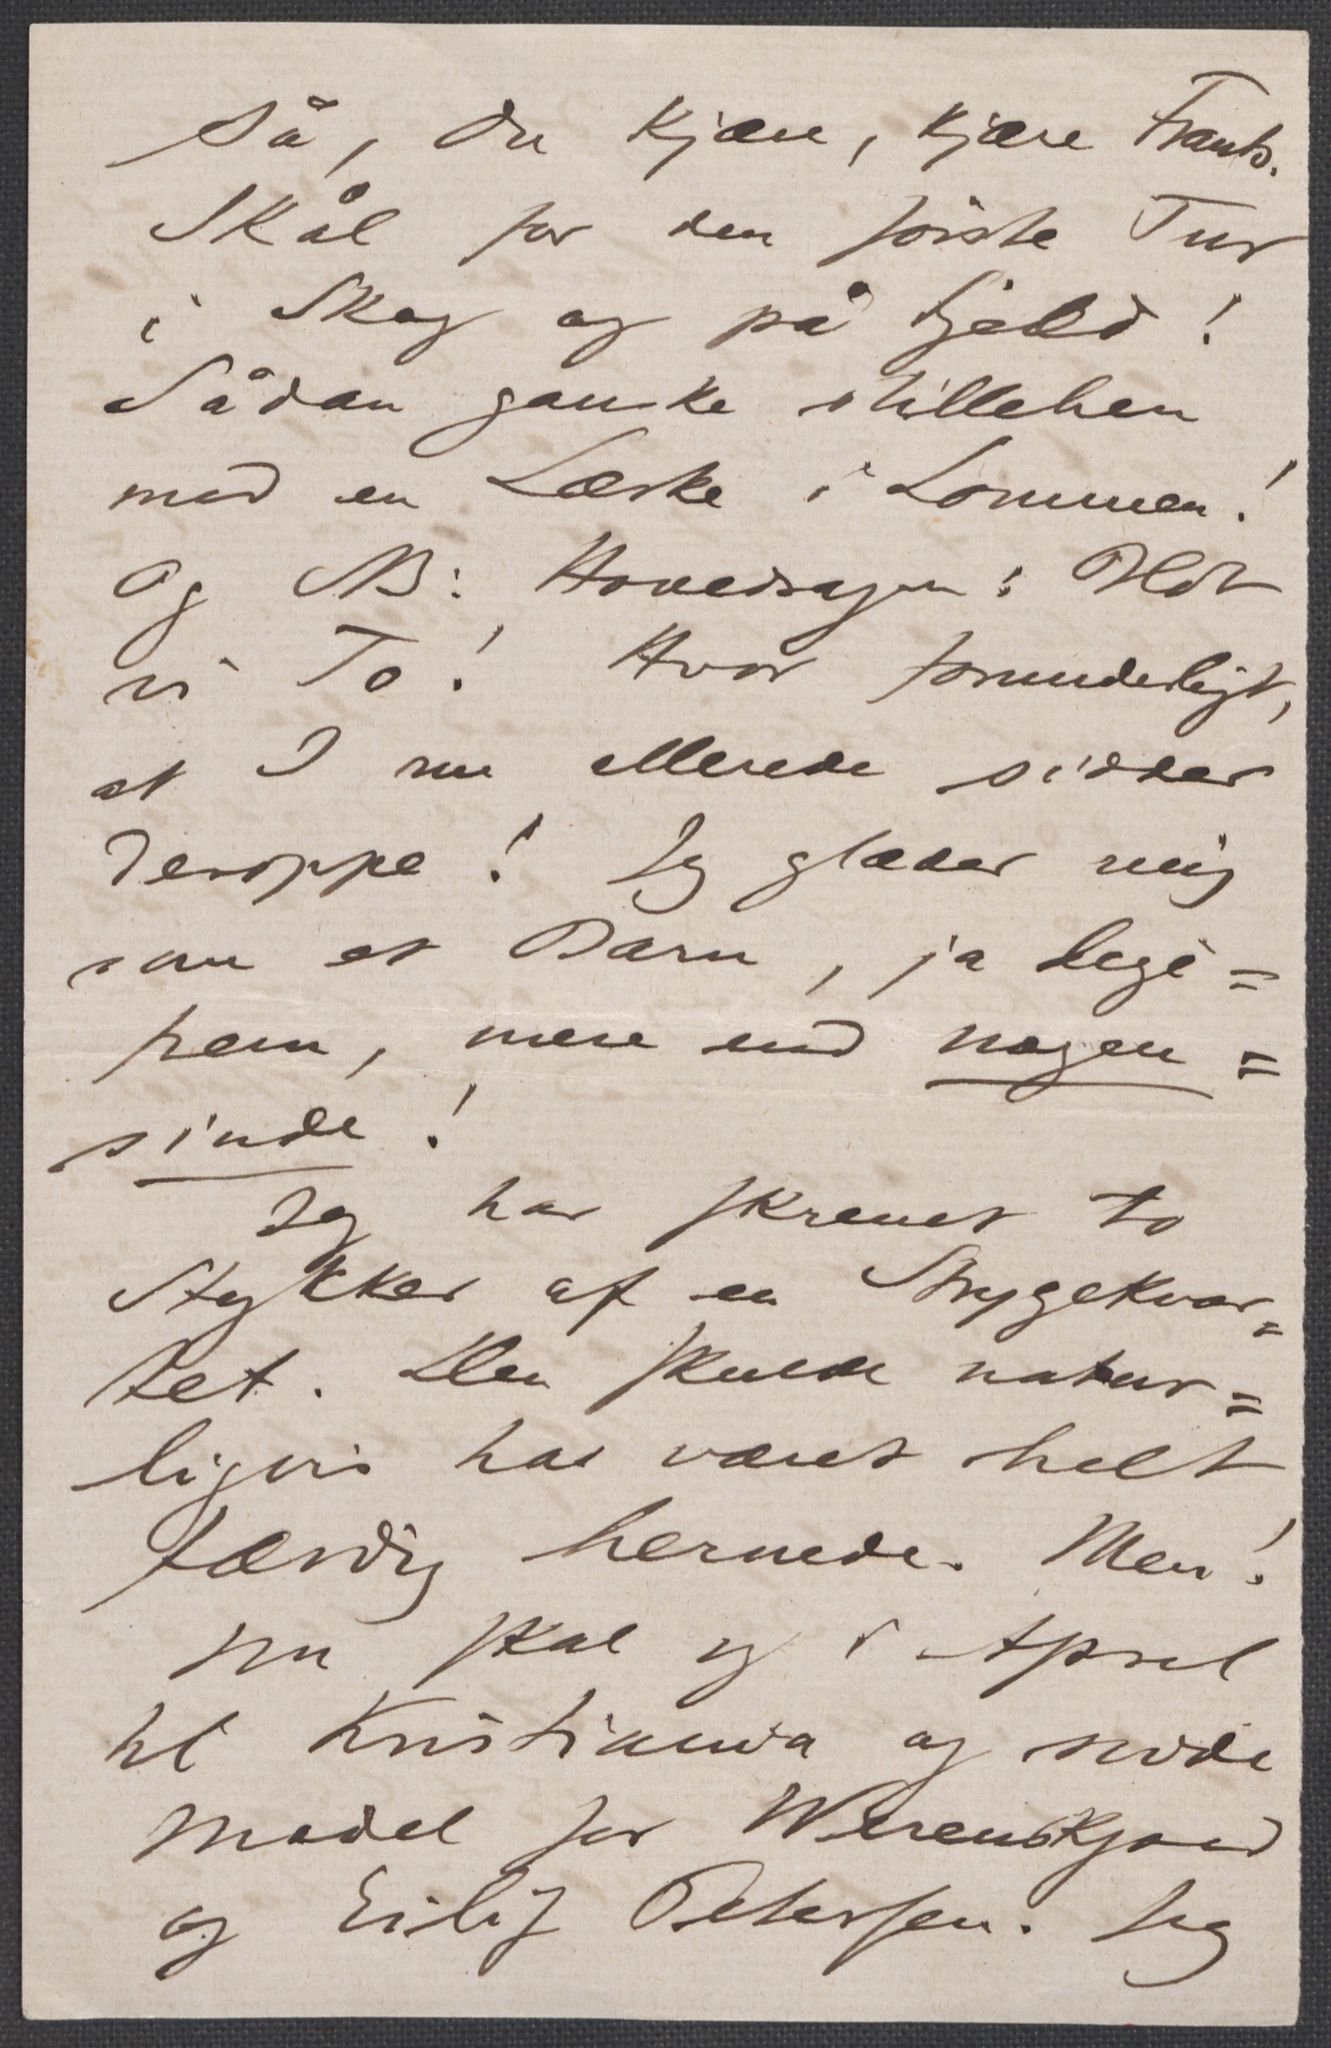 Så, du kjære, kjære Frants.
Skål for den første Tur
i Skog og på Fjeld!
Sådan ganske stillehen
med en Lærke i Lommen!
Og NB: Hovedsagen: Blot
vi To! Hvor forunderligt,
at I nu allerede sidder
deroppe! Jeg glæder mig
som et Barn, ja ligе=
frem, mere end nogen=
sinde!
Jeg har skrevet to
Stykker af en Strygekvar=
tet. Den skulde natur=
ligvis ha været helt
færdig hernede. Men!
Nu skal jeg i April
til Kristiania og sidde
Model for Werenskjold
og Eilif Petersen. Jeg